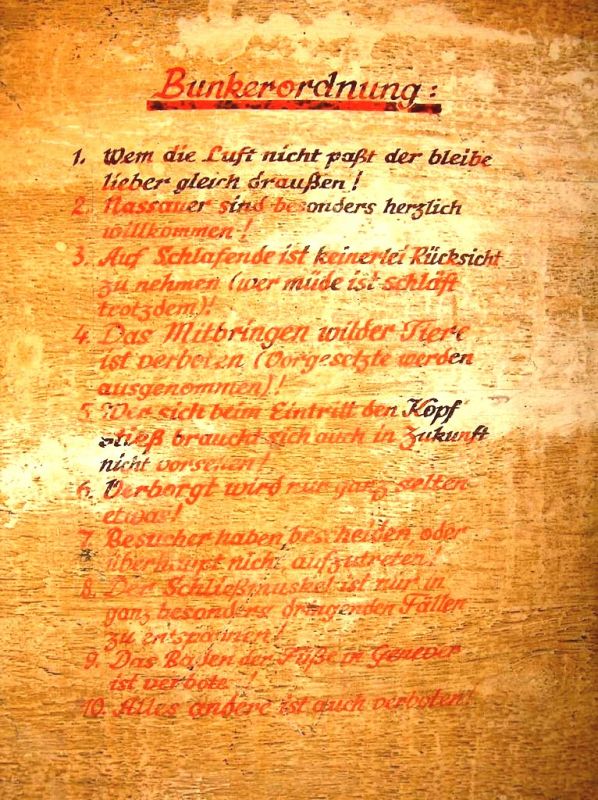 Bunkerordnung:
1. Wem die Luft nicht paßt der bleibe
lieber gleich draußen!
2. Nassauer sind besonders herzlich
willkommen!
3. Auf Schlafende ist keinerlei Rücksicht
zu nehmen (wer müde ist schläft
trotzdem)!
4. Das Mitbringen wilder Tiere
ist verboten (Vorgesetzte werden
ausgenommen)!
5. Wer sich beim Eintritt den Kopf
stieß braucht sich auch in Zukunft
nicht vorsehen!
6. Verborgt wird nur ganz selten
etwas!
7. Besucher haben, bescheiden, oder
überhaupt nicht, aufzutreten!
8. Der Schließmuskel ist nur in
ganz besonders dringenden Fällen
zu entspannen!
9. Das Baden der Füße in Genever
ist verboten!
10. Alles andere ist auch verboten!